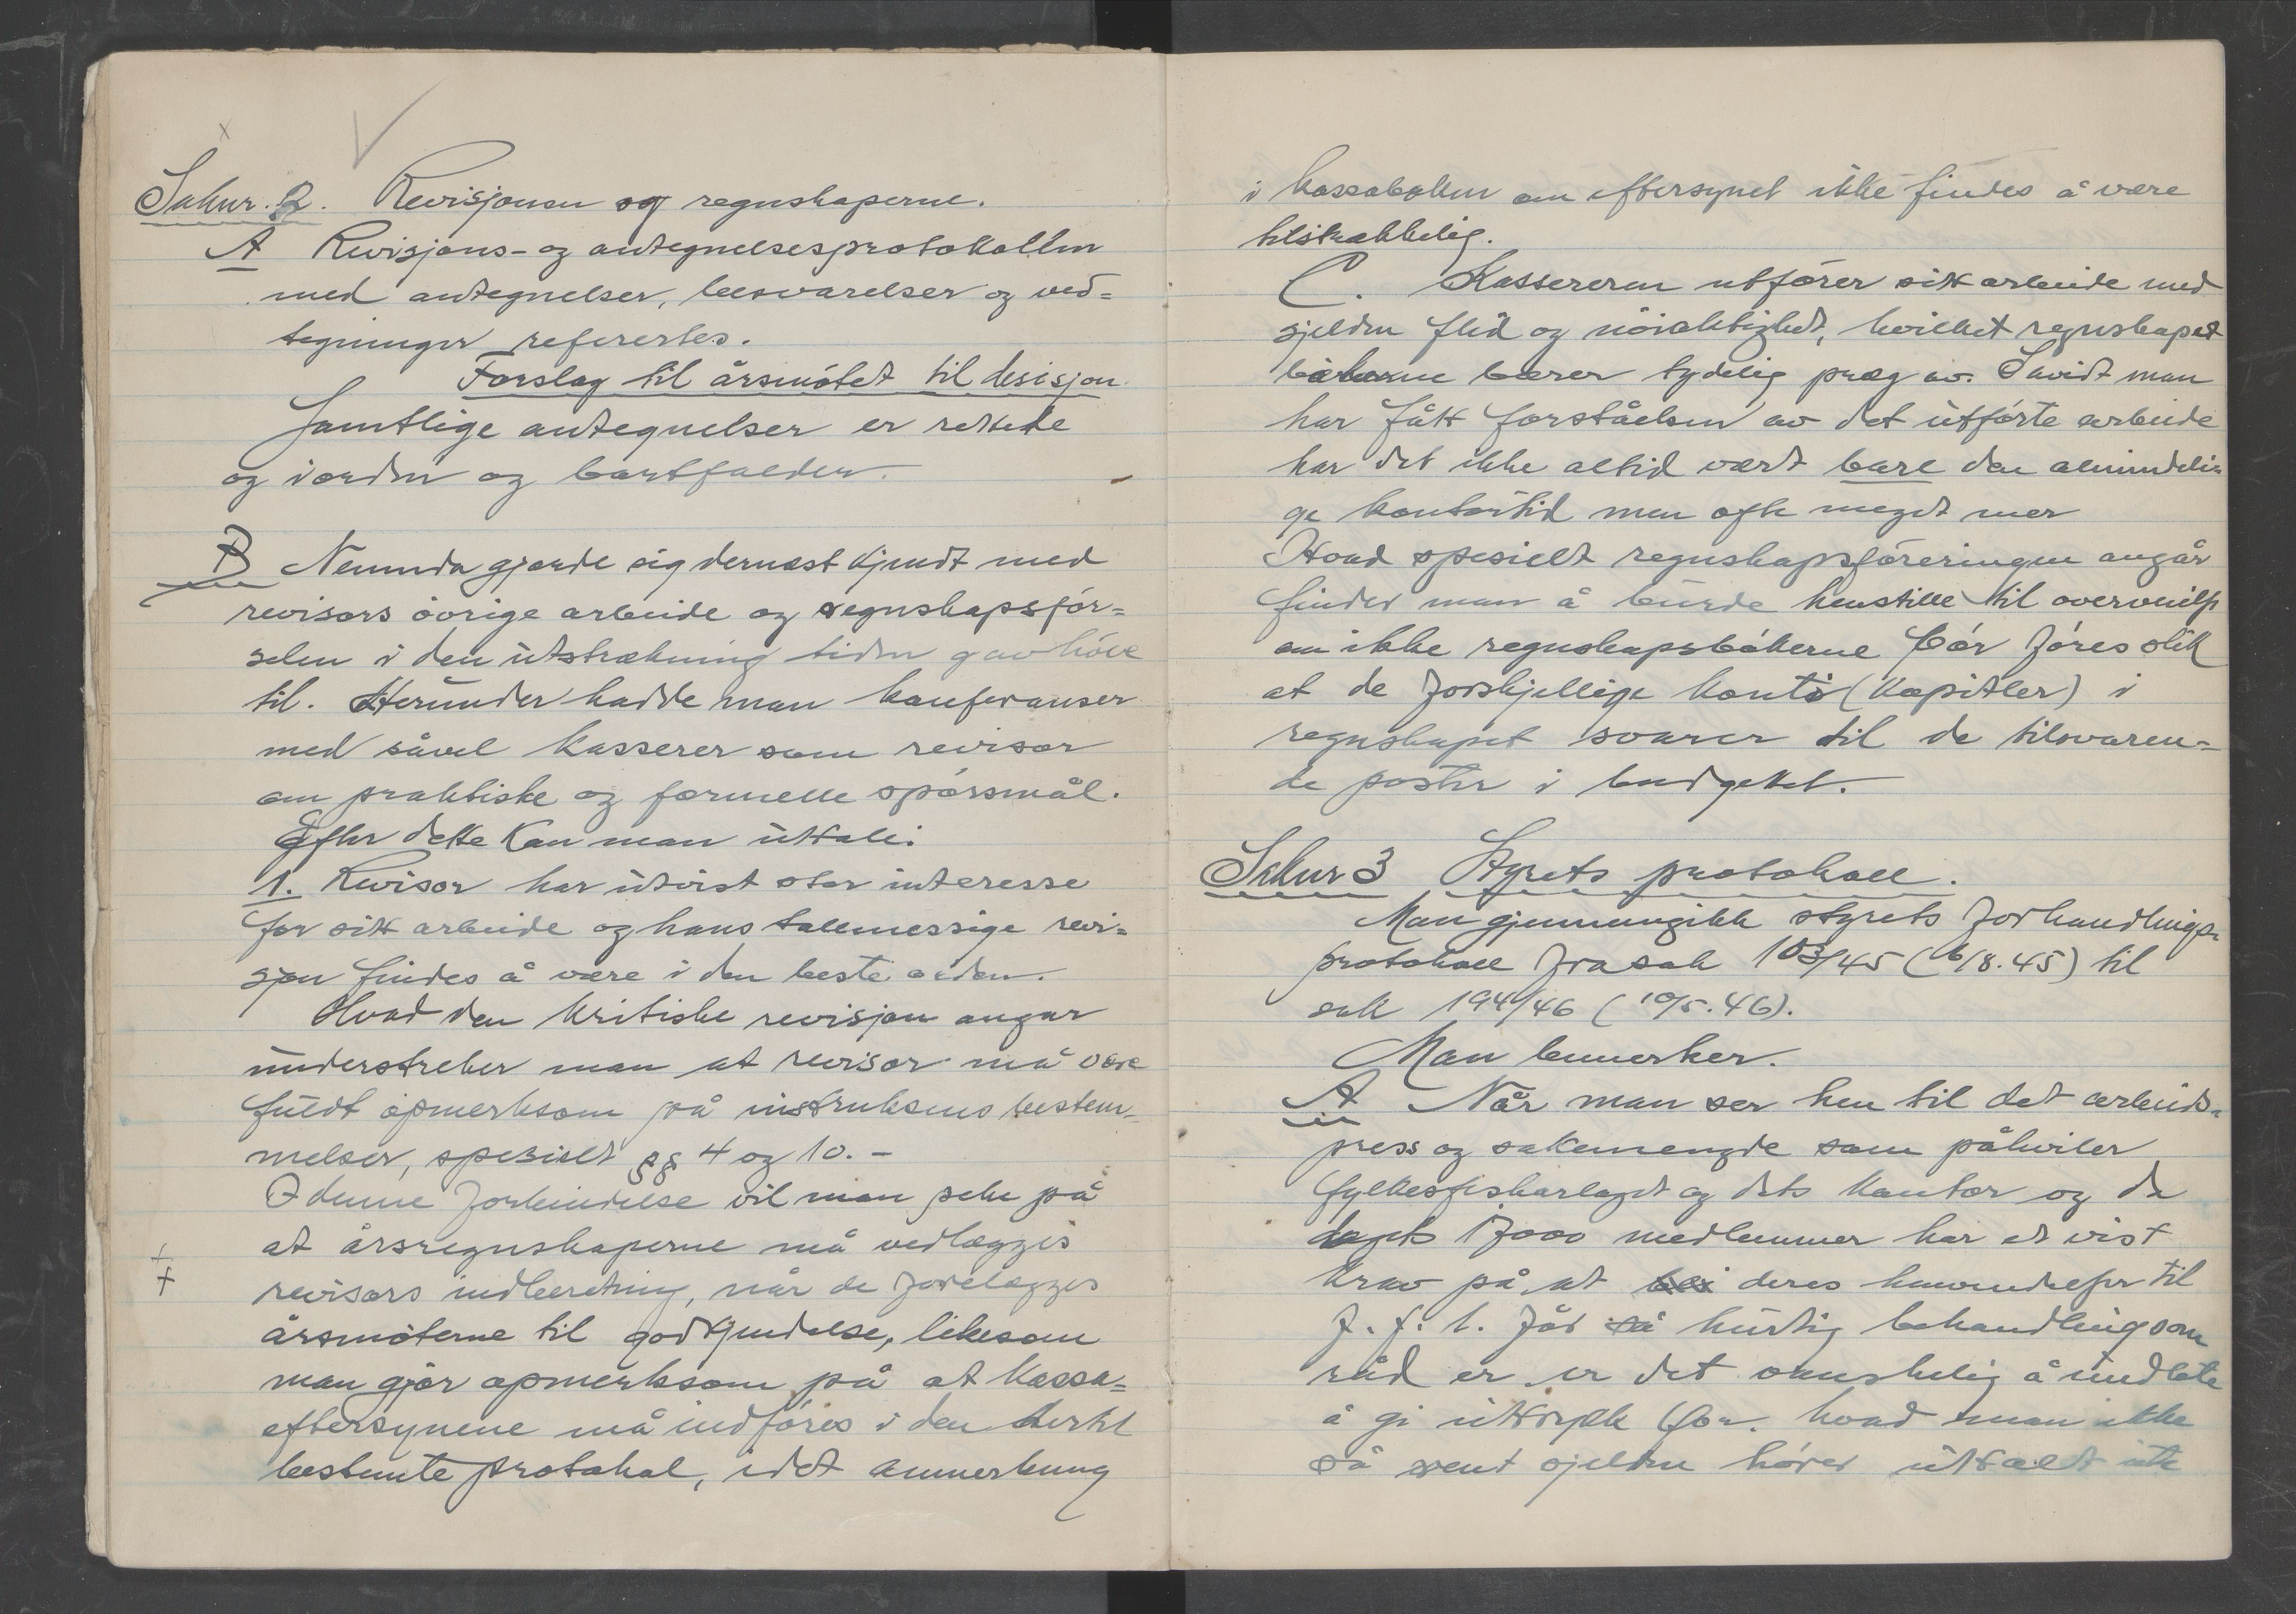 Saknr. 2. Revisjonen og regnskaperne.
A Revisjons- og antegnelsesprotokollen
med antegnelser, besvarelser og ved=
tegninger refererles.
Forslag til årsmötet til desisjon.
Samtlige antegnelser er rettede
og i orden og bortfalder.
B Nemnda gjorde sig dernæst kjendt med
revisors övrige arbeide og regnskapsför=
selen i den utstrækning tiden gav höve
til. Herunder hadde man konferanser
med såvel kasserer som revisor
om praktiske og formelle spörsmål.
Efter dette kan man uttale:
1. Revisor har utvist stor interesse
for sitt arbeide og hans tallmessige revi=
sjon findes å være i den beste orden.
Hvad den kritiske revisjon angår
understreker man at revisor må være
fuldt opmerksom på instruksens bestem=
melser, spesielt §§ 4 og 10. -
I denne forbindelse vil man peke på
at årsregnskaperne må vedlægges
revisors indberetning, når de forelægges
årsmöterne til godkjendelse, likesom
man gjör opmerksom på at kassa=
eftersynene må indföres i den dertil
bestemte protokol, idet anmerkning
i kassaboken om eftersynet ikke findes å være
tilstrækkelig.
C. Kassereren utförer sitt arbeide med
sjelden flid og nöiaktighet, hvilket regnskaps
bökerne bærer tydelig præg av. Såvidt man
har fått forståelsen av det utförte arbeide
har det ikke altid vært bare den almindeli=
ge kontortid men ofte meget mer
Hvad spesielt regnskapsföreringen angår
finder man å burde henstille til overveielse
om ikke regnskapsbökerne bör föres slik
at de forskjellige konti (kapitler) i
regnskapet svarer til de tilsvaren=
de poster i budgettet.
Saknr 3 Styrets protokoll.
Man gjennemgikk styrets forhandlings=
protokoll fra sak 103/45 (6/8.45) til
sak 194/46 (10/5.46).
Man bemerker.
A Når man ser hen til det arbeids=
press og sakemengde som påhviler
fylkesfiskarlaget og dets kontor og de
lagets 17000 medlemmer har et vist
krav på at deres henvendelser til
f.f.l. får så hurtig behandling som
råd er er det vanskelig å undlate
å gi uttrykk for hvad man ikke
så rent sjelden hörer uttalt ute